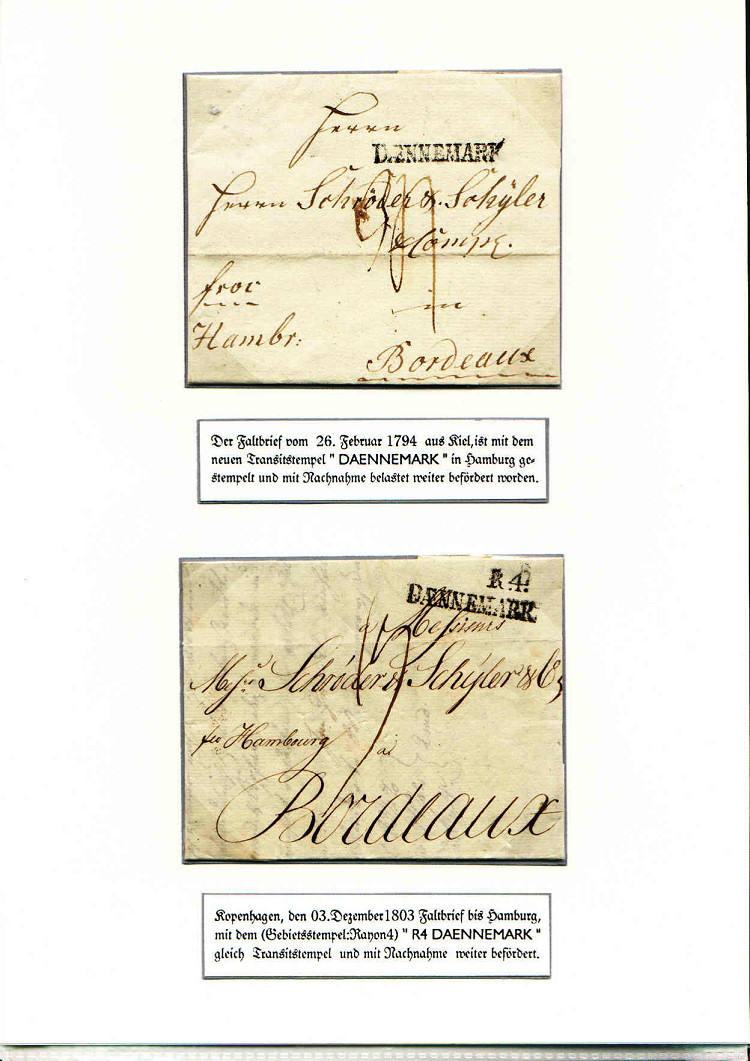 Herrn
DÆNNEMARK
Herrn Schröder & Schÿler
& Comp.
froc
Hambr:
in
Bordeaux
Der Faltbrief vom 26. Februar 1794 aus Kiel, ist mit dem
neuen Transitstempel " DAENNEMARK " in Hamburg ge-
stempelt und mit Nachnahme belastet weiter befördert worden.
R 4.
DÆNNEMARK
a Messieurs
Schröder & Schÿler & Co
Hambourg
a
Bordeaux
Kopenhagen, den 03.Dezember1803 Faltbrief bis Hamburg,
mit dem (Gebietsstempel:Rayon4) " R4 DAENNEMARK "
gleich Transitstempel und mit Nachnahme weiter befördert.